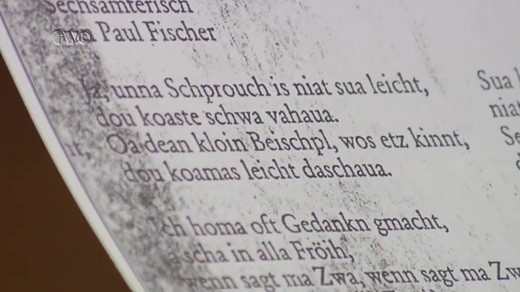 Sechsämterisch
Paul Fischer
Ja, unna Schprouch is niat sua leicht,
dou koaste schwa vahaua.
Oa dean kloin Beischpl, wos etz kinnt,
dou koamas leicht daschaua.
Ich homa oft Gedankn gmacht,
in alla Fröih,
wenn sagt ma Zwa, wenn sagt ma Zw
Sua
niat
Se
d